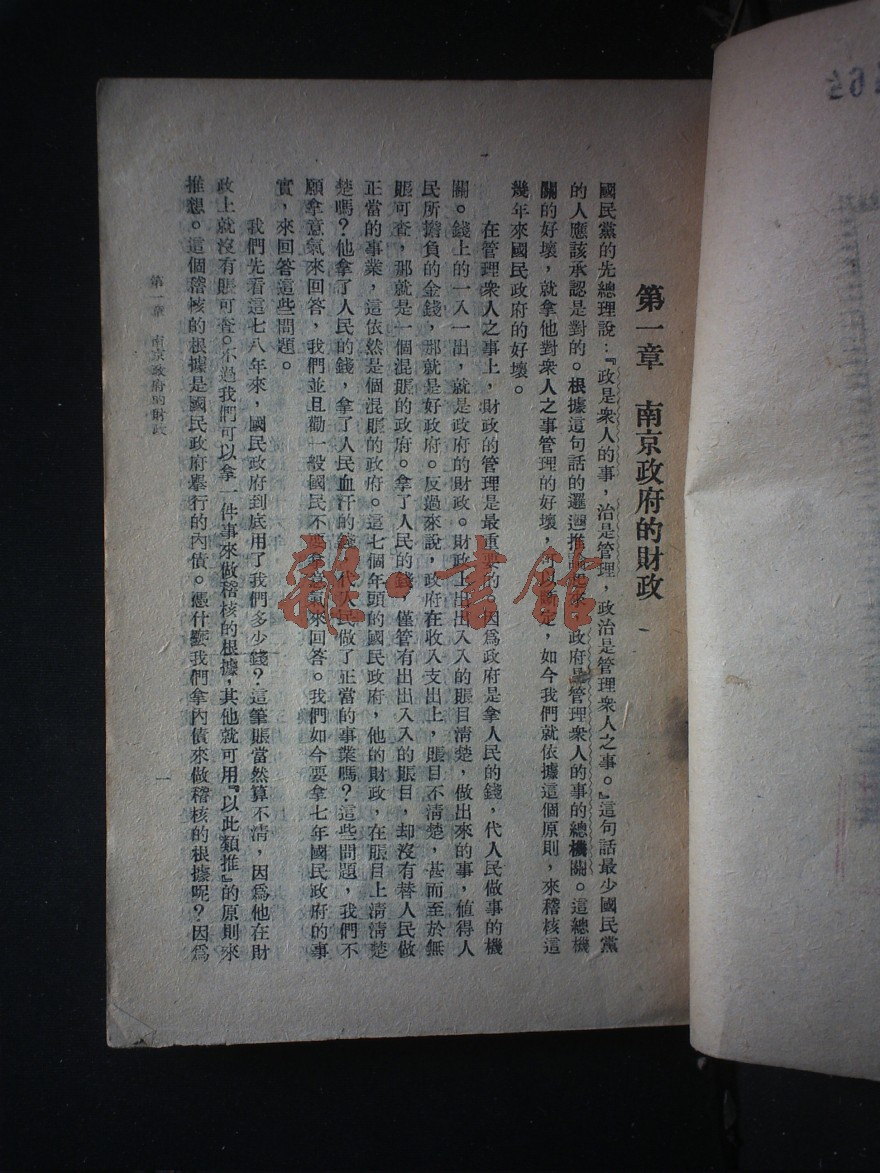 第一章　南京政府的財政
國民黨的先總理說：『政是衆人的事，治是管理，政治是管理衆人之事。』這句話最少國民黨
的人應該承認是對的。根據這句話的邏輯推論起來，政府是管理衆人的事的總機關。這總機
關的好壞，就拿他對衆人之事管理的好壞，可以斷定，如今我們就依據這個原則，來稽核這
幾年來國民政府的好壞。
在管理衆人之事上，財政的管理是最重要的。因爲政府是拿人民的錢，代人民做事的機
關。錢上的一入一出，就是政府的財政。財政上出出入入的賬目清楚，做出來的事，值得人
民所擔負的金錢，那就是好政府。反過來說，政府在收入支出上，賬目不清楚，甚而至於無
賬可查，那就是一個混賬的政府。拿了人民的錢，僅管有出出入入的賬目，却沒有替人民做
正當的事業，這依然是個混賬的政府。這七個年頭的國民政府，他的財政，在賬目上清清楚
楚嗎？他拿了人民的錢，拿了人民血汗的錢，代人民做了正當的事業嗎？這些問題，我們不
願拿意氣來回答，我們並且勸一般國民不要拿意氣來回答。我們如今要拿七年國民政府的事
實，來回答這些問題。
我們先看這七八年來，國民政府到底用了我們多少錢？這筆賬當然算不清，因爲他在財
政上就沒有賬可查。不過我們可以拿一件事來做稽核的根據，其他就可用『以此類推』的原則來
推想。這個稽核的根據是國民政府舉行的內債。憑什麼我們拿內債來做稽核的根據呢？因爲
第一章　南京政府的財政
一
雜·書館